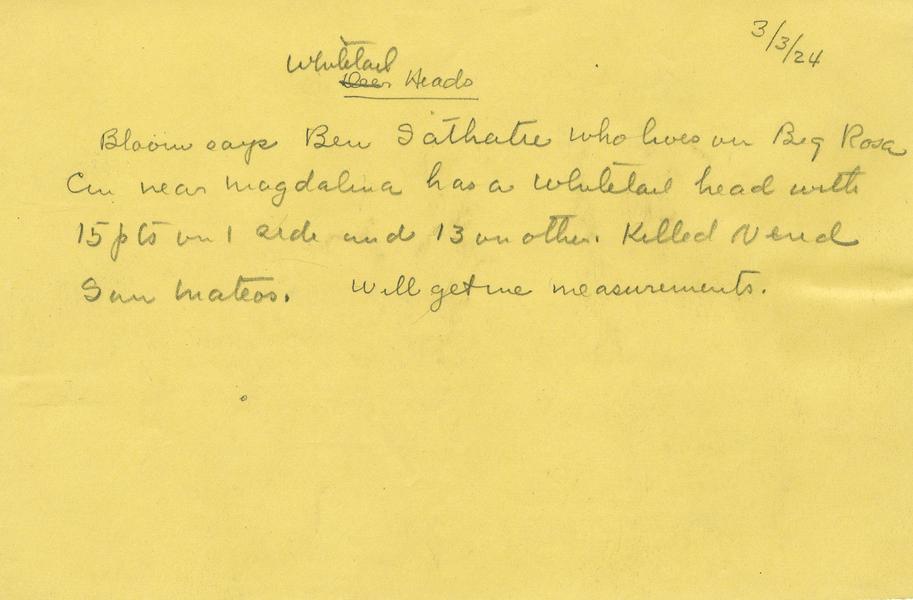 3/3/24
Whitetail
Deer Heads
Bloom says Ben who lives on Big Rosa
Cn near Magdalina has a whitetail head with
15 pts on 1 side and 13 on other. Killed N end
San Mateos. Will get me measurements.